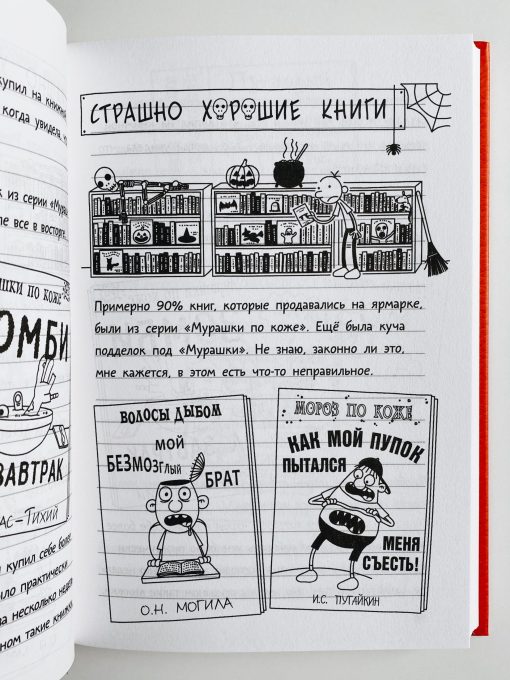 купил на книжной
когда увидела,
из серии «Мураш
все в восторге.
по коже
ЗАВТРАК
купил себе
было практически
несколько недель
ном такие книжки
СТРАШНО ХОРОШИЕ КНИГИ
Примерно 90% книг, которые продавались на ярмарке,
были из серии «Мурашки по коже». Ещё была куча
подделок под «Мурашки». Не знаю, законно ли это,
мне кажется, в этом есть что-то неправильное.
ВОЛОСЫ ДЫБОМ
МОЙ
БЕЗМОЗГЛЫЙ
БРАТ
О.Н. МОГИЛА
МОРОЗ ПО КОЖЕ
КАК МОЙ ПУПОК
ПЫТАЛСЯ
МЕНЯ
СЪЕСТЬ!
И.С. ПУГАЙКИН